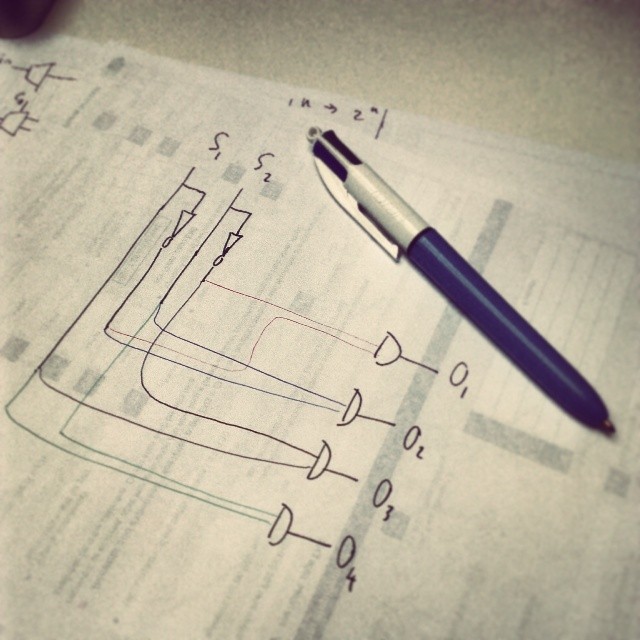 n → 2ⁿ
S₁ S₂
O₁
O₂
O₃
O₄